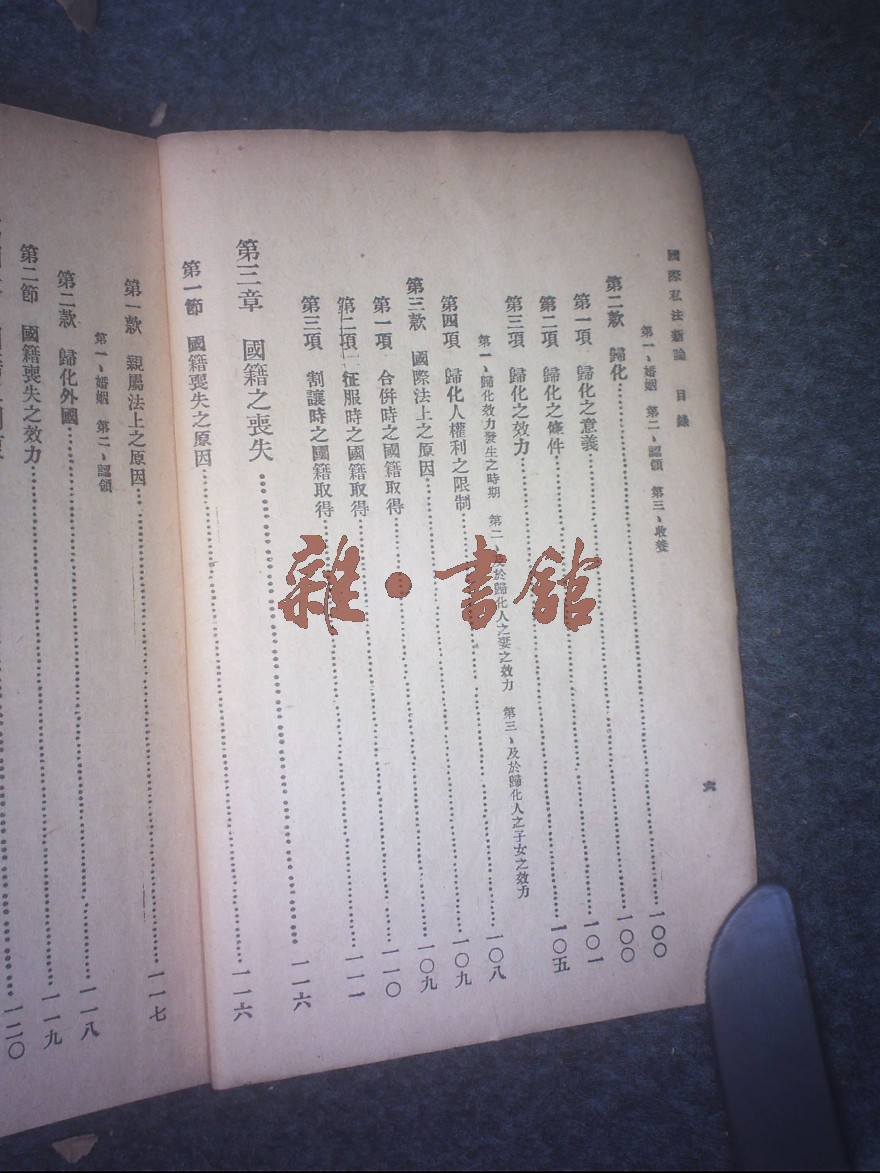 國際私法新論 目錄 六
第一、婚姻 第二、認領 第三、收養
第二款 歸化……一〇〇
第一項 歸化之意義……一〇〇
第二項 歸化之條件……一〇一
第三項 歸化之效力……一〇五
第一、歸化效力發生之時期 第二、及於歸化人之妻之效力 第三、及於歸化人之子女之效力
第四項 歸化人權利之限制……一〇八
第三款 國際法上之原因……一〇九
第一項 合併時之國籍取得……一〇九
第二項 征服時之國籍取得……一一〇
第三項 割讓時之國籍取得……一一一
第三章 國籍之喪失……一一六
第一節 國籍喪失之原因……一一六
第一款 親屬法上之原因……一一七
第一、婚姻 第二、認領
第二款 歸化外國……一一八
第二節 國籍喪失之效力……一一九
一二〇
雜·書館